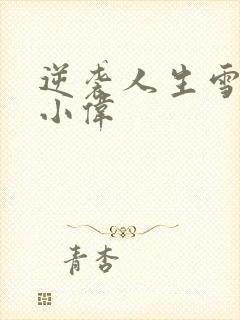 逆袭人生雪
小偉
青杏